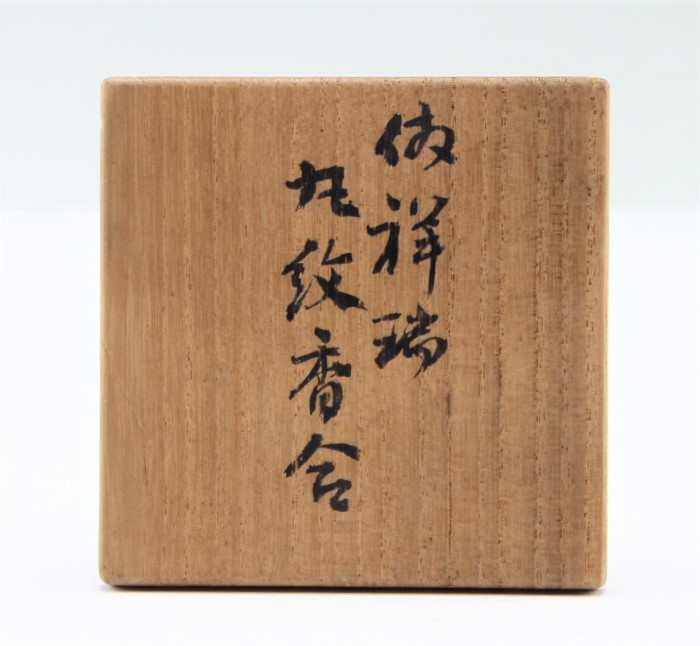 倣祥瑞
丸紋香合